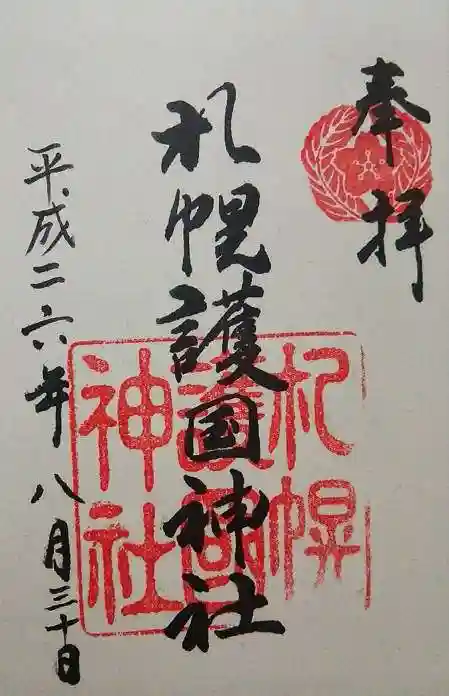 奉拝
札幌護国神社
平成二六年八月三十日
札幌
護国
神社